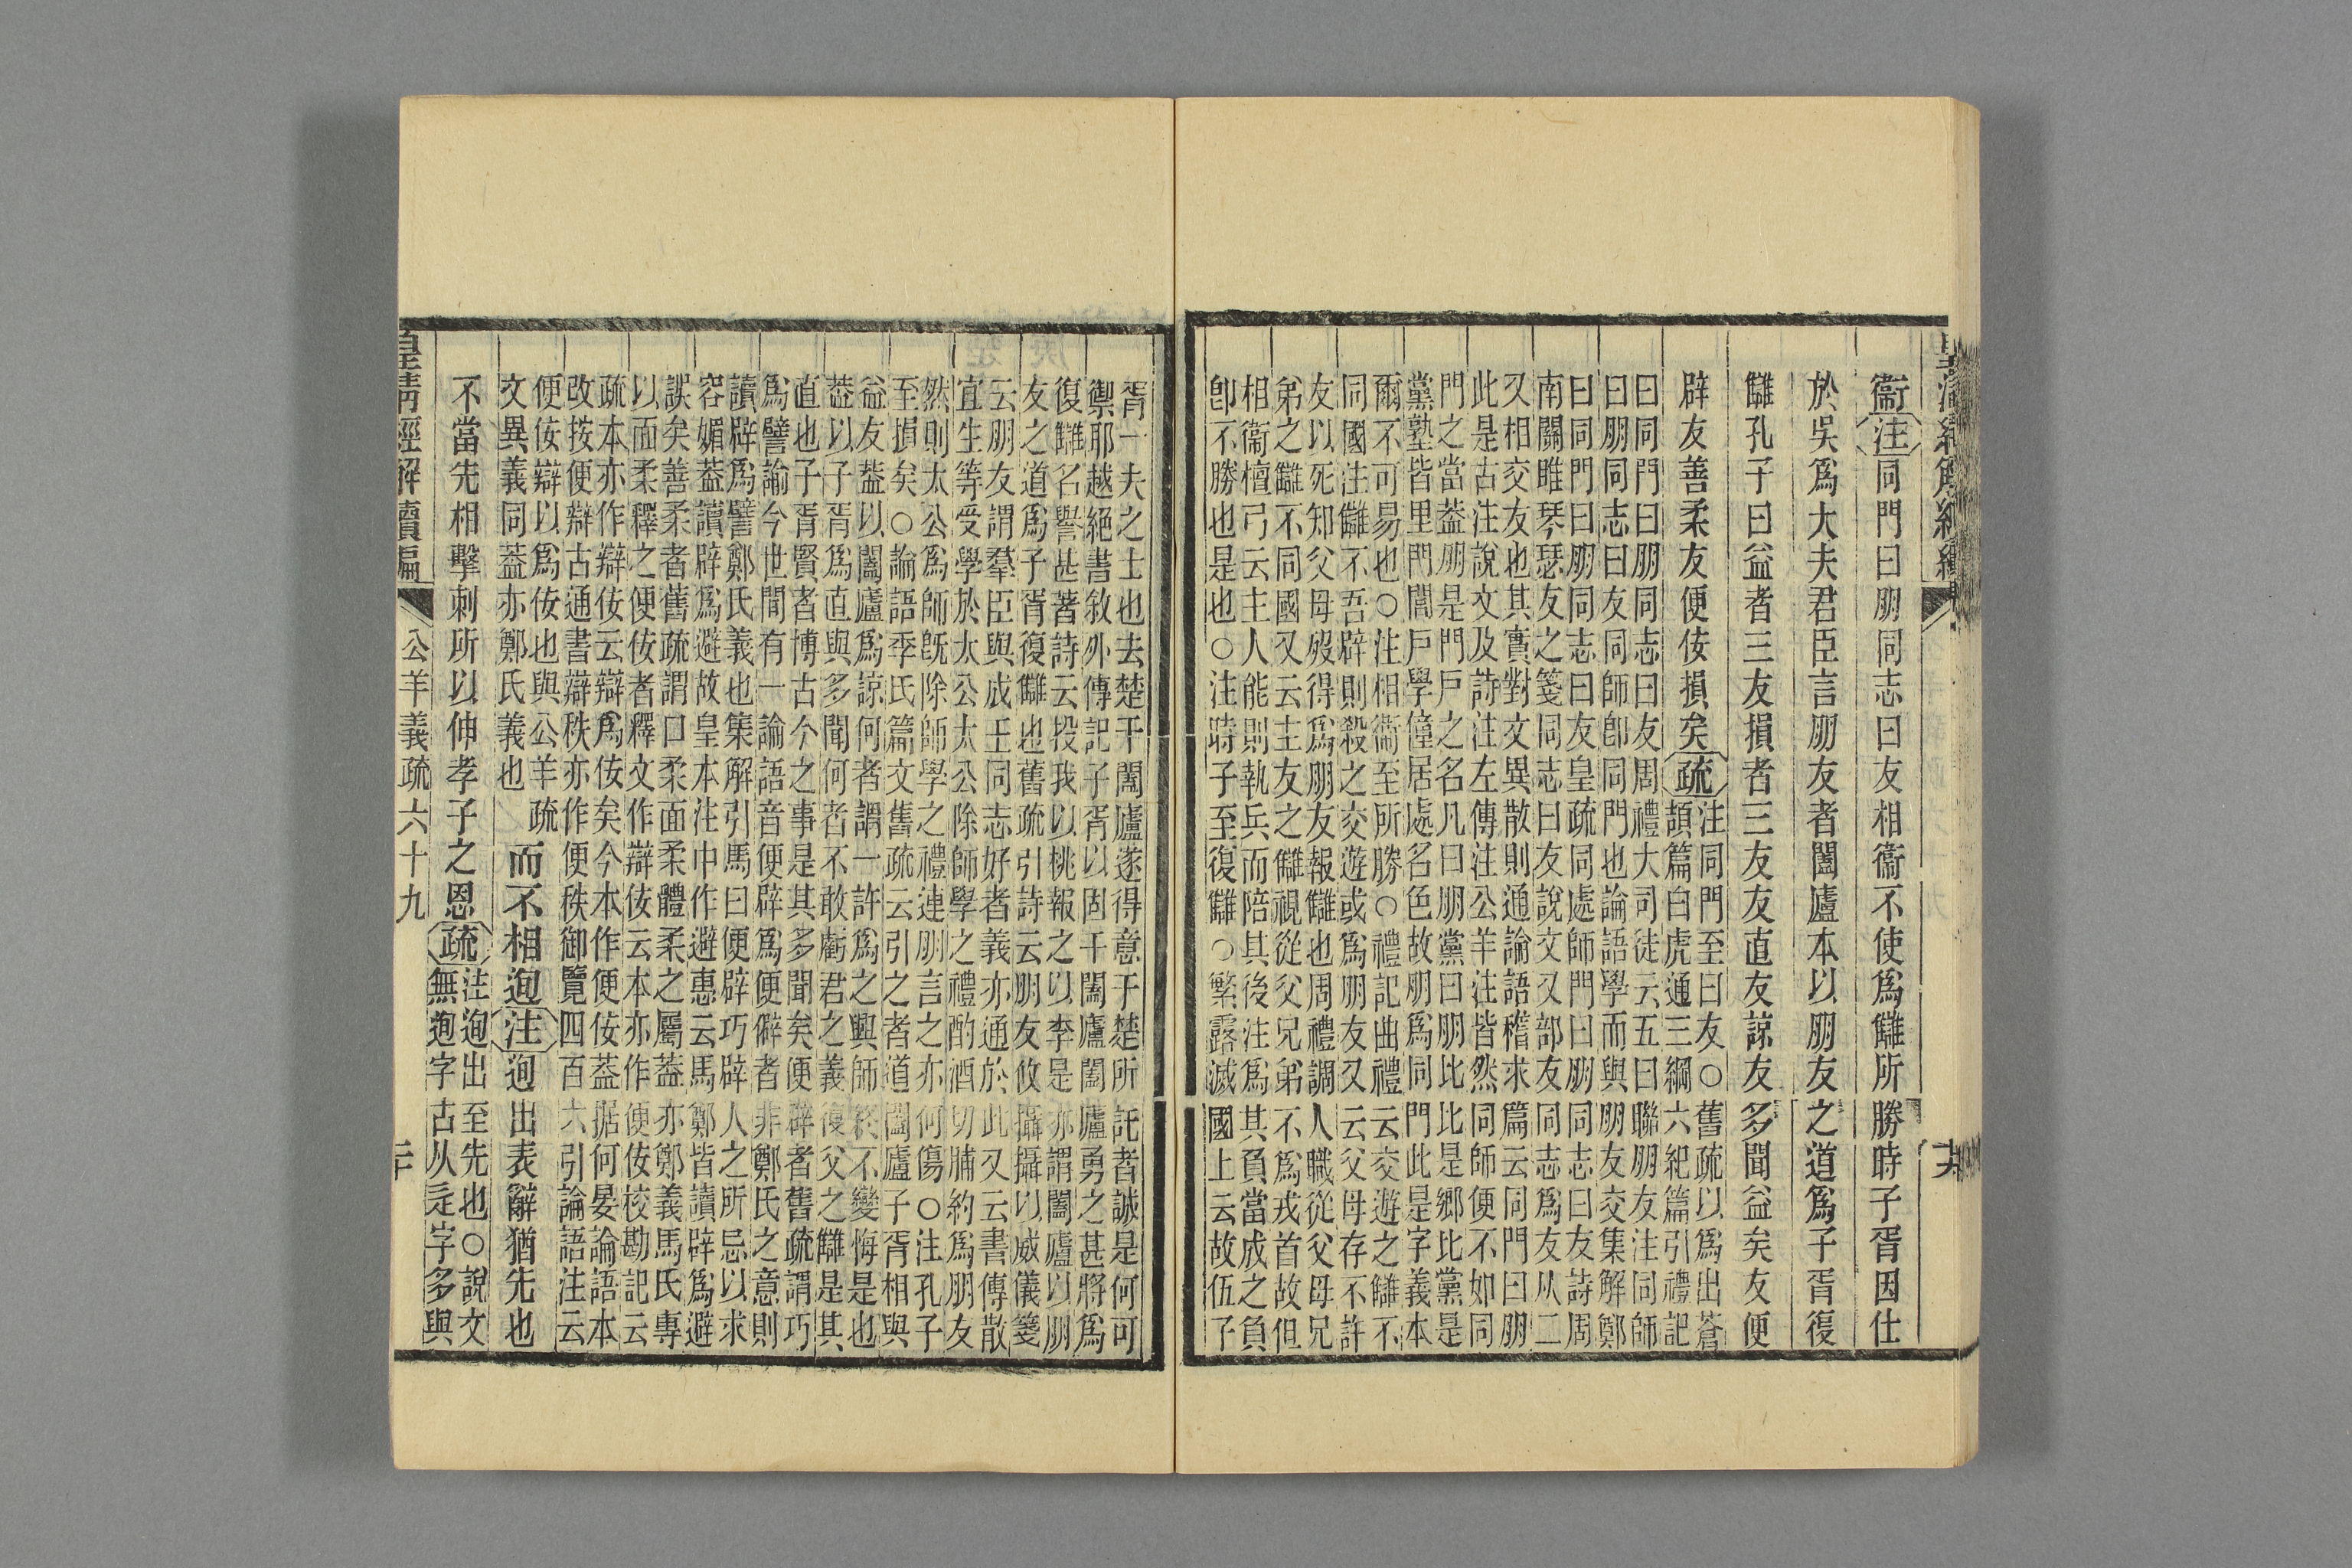 衞注同門曰朋同志曰友相衞不使爲讎所勝時子胥因仕
於吳爲大夫君臣言朋友者闔廬本以朋友之道爲子胥復
讎孔子曰益者三友損者三友友直友諒友多聞益矣友便
辟友善柔友便佞損矣疏
注同門至曰友○舊疏以爲出蒼
頡篇白虎通三綱六紀篇引禮記
曰同門曰朋同志曰友周禮大司徒云五曰聯朋友注同師
曰朋同志曰友同師卽同門也論語學而與朋友交集解鄭
曰同門曰朋同志曰友皇疏同處師門曰朋同志曰友詩周
南關雎琴瑟友之箋同志曰友說文又部友同志爲友从二
又相交友也其實對文異散則通論語稽求篇云同門曰朋
此是古注說文及詩注左傳注公羊注皆然同師便不如同
門之當葢朋是門戸之名凡曰朋黨曰朋比比是鄉比黨是
黨塾皆里門閭戸學僮居處名色故朋爲同門此是字義本
爾不可易也○注相衞至所勝○禮記曲禮云交遊之讎不
同國注讎不吾辟則殺之交遊或爲朋友又云父母存不許
友以死知父母歿得爲朋友報讎也周禮調人職從父母兄
弟之讎不同國又云主友之讎視從父兄弟不爲戎首故但
相衞檀弓云主人能則執兵而陪其後注爲其負當成之負
卽不勝也是也○注時子至復讎○繁露滅國上云故伍子
胥一夫之士也去楚干闔廬遂得意于楚所託者誠是何可
禦耶越絕書敘外傳記子胥以困干闔廬闔廬勇之甚將爲
復讎名譽甚著詩云投我以桃報之以李是亦謂闔廬以朋
友之道爲子胥復讎也舊疏引詩云朋友攸攝攝以威儀箋
云朋友謂羣臣與成王同志好者義亦通於此又云書傳散
宜生等受學於太公太公除師學之禮酌酒切脯約爲朋友
然則太公爲師旣除師學之禮連朋言之亦何傷○注孔子
至損矣○論語季氏篇文舊疏云引之者道闔廬子胥相與
益友葢以闔廬爲諒何者謂一許爲之興師終不變悔是也
葢以子胥爲直與多聞何者不敢虧君之義復父之讎是其
直也子胥賢者博古今之事是其多聞矣便辟者舊疏謂巧
爲譬諭今世間有一論語音便辟爲便僻者非鄭氏之意則
讀辟爲譬鄭氏義也集解引馬曰便辟巧辟人之所忌以求
容媚葢讀辟爲避故皇本注中作避惠云馬鄭皆讀辟爲避
誤矣善柔者舊疏謂口柔面柔體柔之屬葢亦鄭義馬氏專
以面柔釋之便佞者釋文作辯佞云本亦作便佞校勘記云
疏本亦作辯佞云辯爲佞矣今本作便佞葢据何晏論語本
改按便辯古通書辯秩亦作便秩御覽四百六引論語注云
便佞辯以爲佞也與公羊疏
文異義同葢亦鄭氏義也
而不相迿注迿出表辭猶先也
不當先相擊刺所以伸孝子之恩疏
注迿出至先也○說文
無迿字古从辵字多與
皇清經解續編 公羊義疏六十九